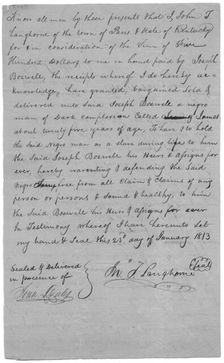 Know all men by these presents that I, John T.
Langhorne of the town of Paris & State of Kentucky
for & in consideration of the Sum of
Hundred dollars to me in hand paid by Joseph
Boswell, the receipt whereof I do hereby ac-
knowledge, have granted, bargained Sold &
delivered unto Said Joseph Boswell a negro
man of dark complexion Called James
about twenty five years of age, To have & to hold
the Said Negro man as a slave during life to him
the Said Joseph Boswell his Heirs & Assigns for
ever, hereby warranting & defending the Said
negro free from all Claim & Claims of any
person or persons & sound & healthy, to him
the Said Boswell his heirs & Assigns for ever
In Testimony whereof I have hereunto Set
my hand & Seal this 23d day of January 1813
Jno T Langhorne Seal
Sealed & Delivered
in presence of